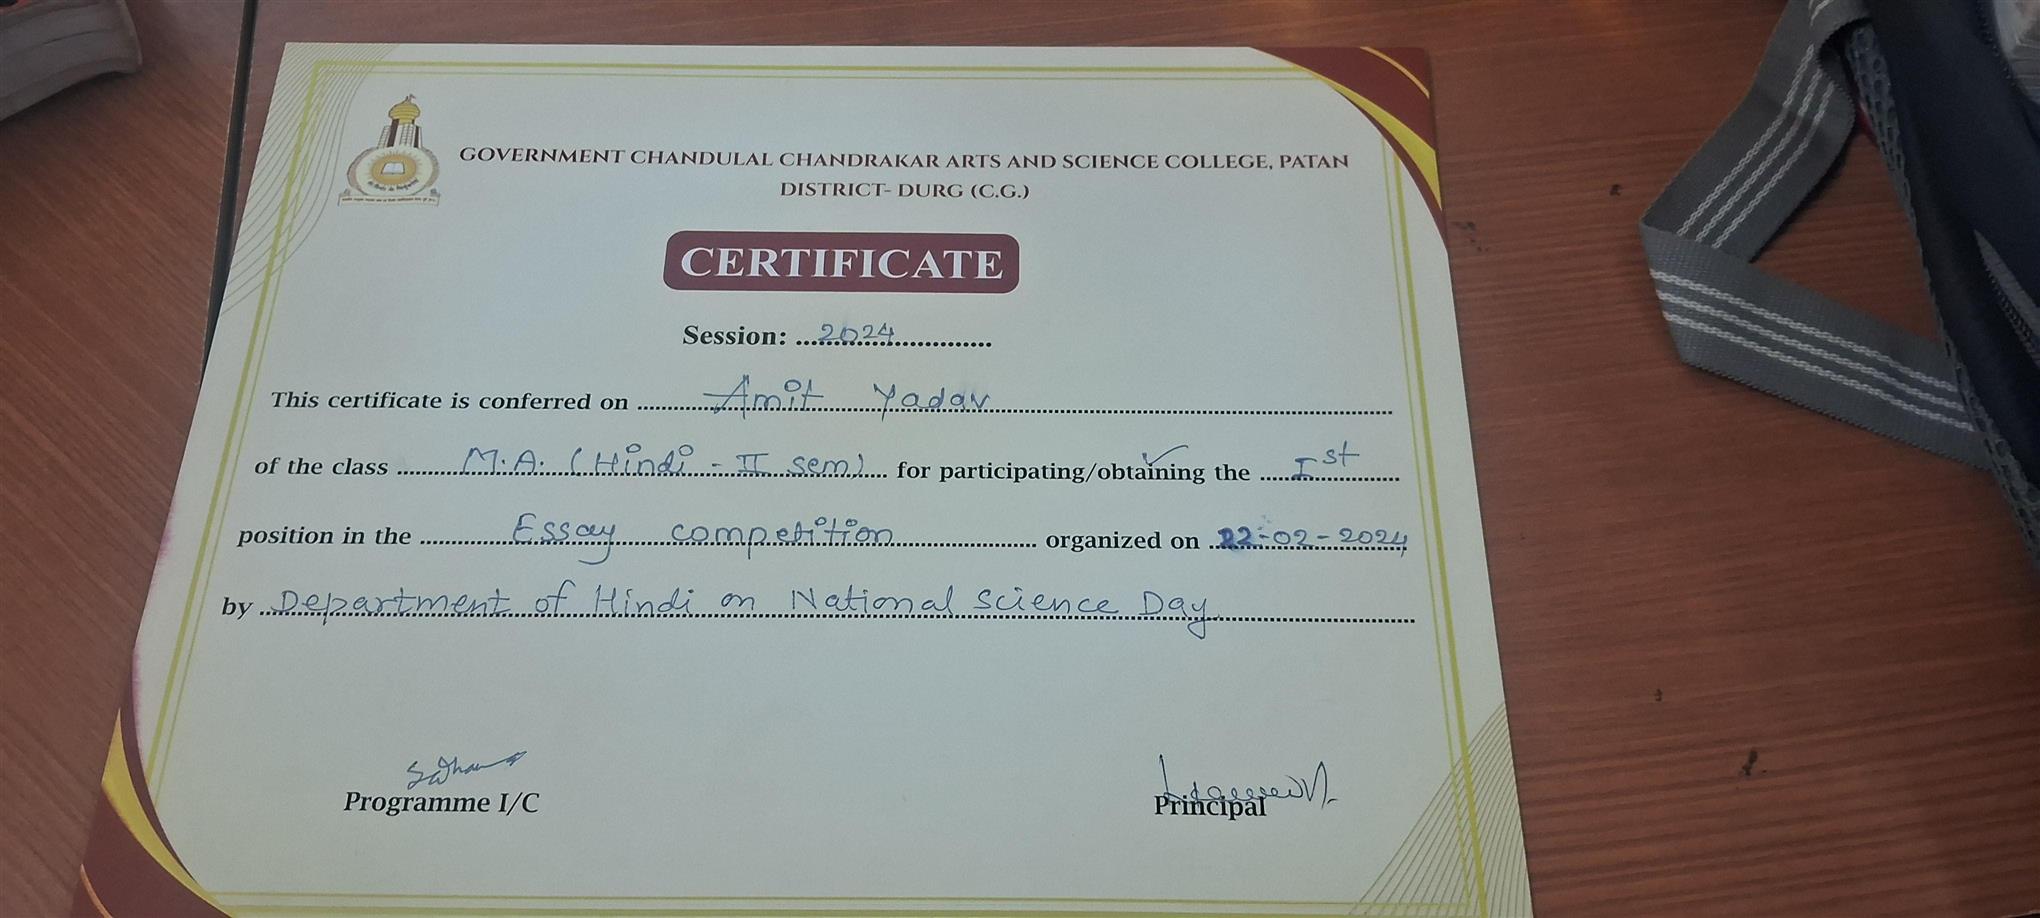 GOVERNMENT CHANDULAL CHANDRAKAR ARTS AND SCIENCE COLLEGE, PATAN
DISTRICT- DURG (C.G.)
CERTIFICATE
Session: ...2024...
This certificate is conferred on ...Amit Yadav...
of the class ...M.A. (Hindi - II sem)... for participating/obtaining the ...Ist...
position in the ...Essay competition... organized on ...22-02-2024
by ...Department of Hindi on National Science Day...
Programme I/C
Principal